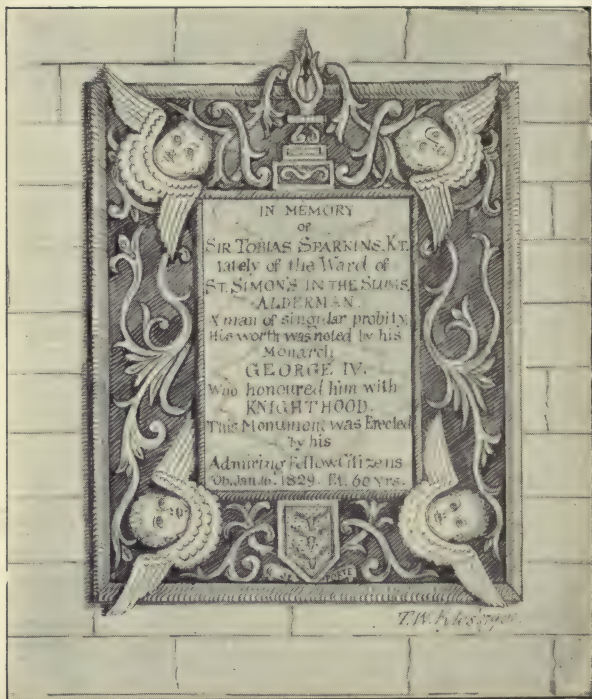 IN MEMORY
OF
SIR TOBIAS SPARKINS, KT.
lately of the Ward of
ST. SIMON'S IN THE SLUMS,
ALDERMAN.
A man of singular probity,
His worth was noted by his
Monarch
GEORGE IV.
Who honoured him with
KNIGHTHOOD.
This Monument was Erected
by his
Admiring Fellow Citizens
Ob. Jan. 16. 1829. Et. 60 yrs.
T.W.